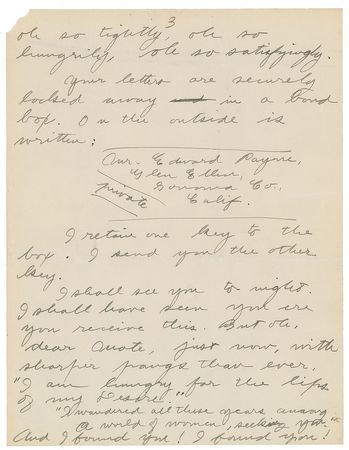 3
oh so tightly, oh so
hungrily, oh so satisfyingly.
Your letters are securely
locked away in a bond
box. On the outside is
written:
Mr. Edward Payne,
Glen Ellen,
Sonoma Co.,
Calif.
private
I retain one key to the
box. I send you the other
key.
I shall see you to-night.
I shall have seen you ere
you receive this. But oh,
dear Mate, just now, with
sharper pangs than ever,
"I am hungry for the lips
of my Desire."
"I wandered all these years among
a world of women, seeking you."
And I found you! I found you!